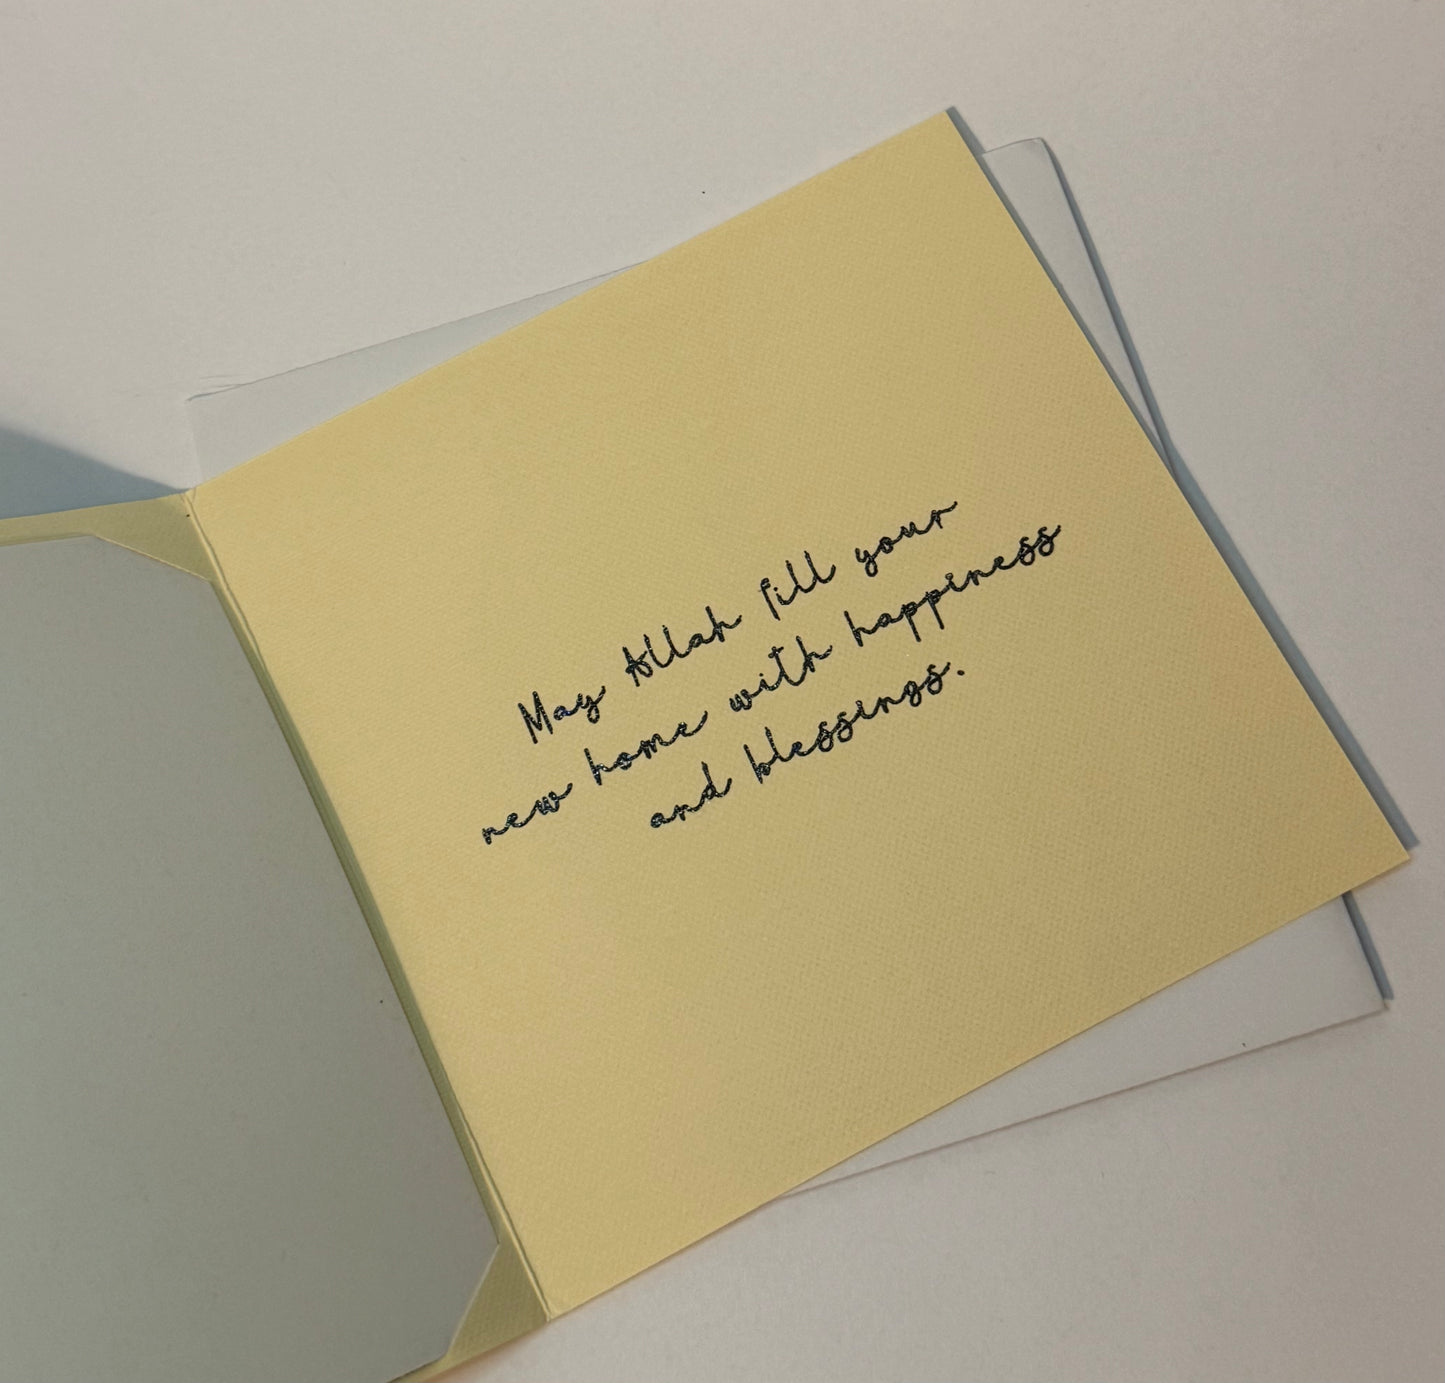 May Allah fill your
new home with happiness
and blessings.